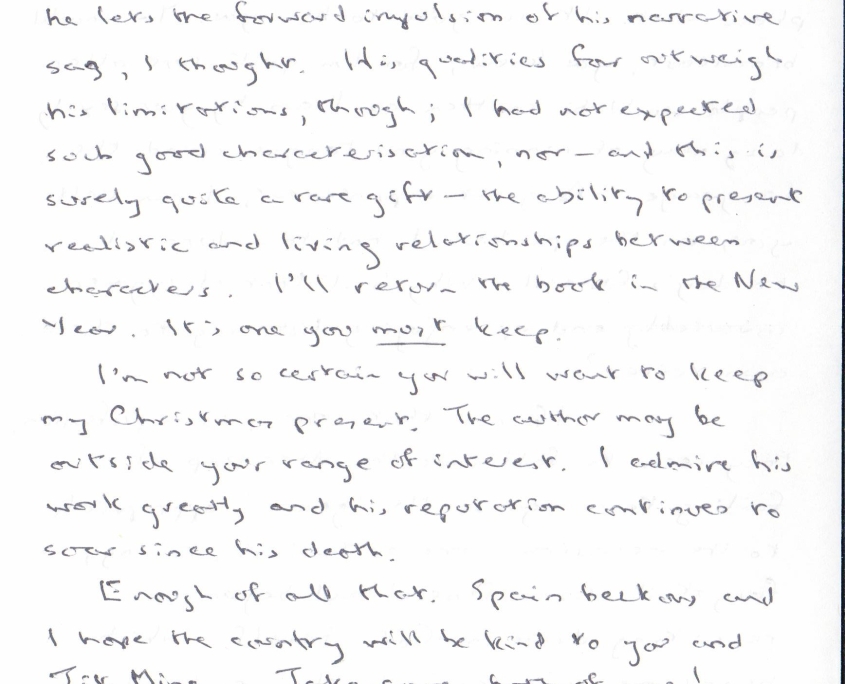 he lets the forward impulsion of his narrative
sag, I thought. His qualities far outweigh
his limitations, though; I had not expected
such good characterisation, nor – and this is
surely quite a rare gift – the ability to present
realistic and living relationships between
characters. I'll return the book in the New
Year. It's one you must keep.
I'm not so certain you will want to keep
my Christmas present. The author may be
outside your range of interest. I admire his
work greatly and his reputation continues to
soar since his death.
Enough of all that. Spain beckons and
I hope the country will be kind to you and
Take both of you!